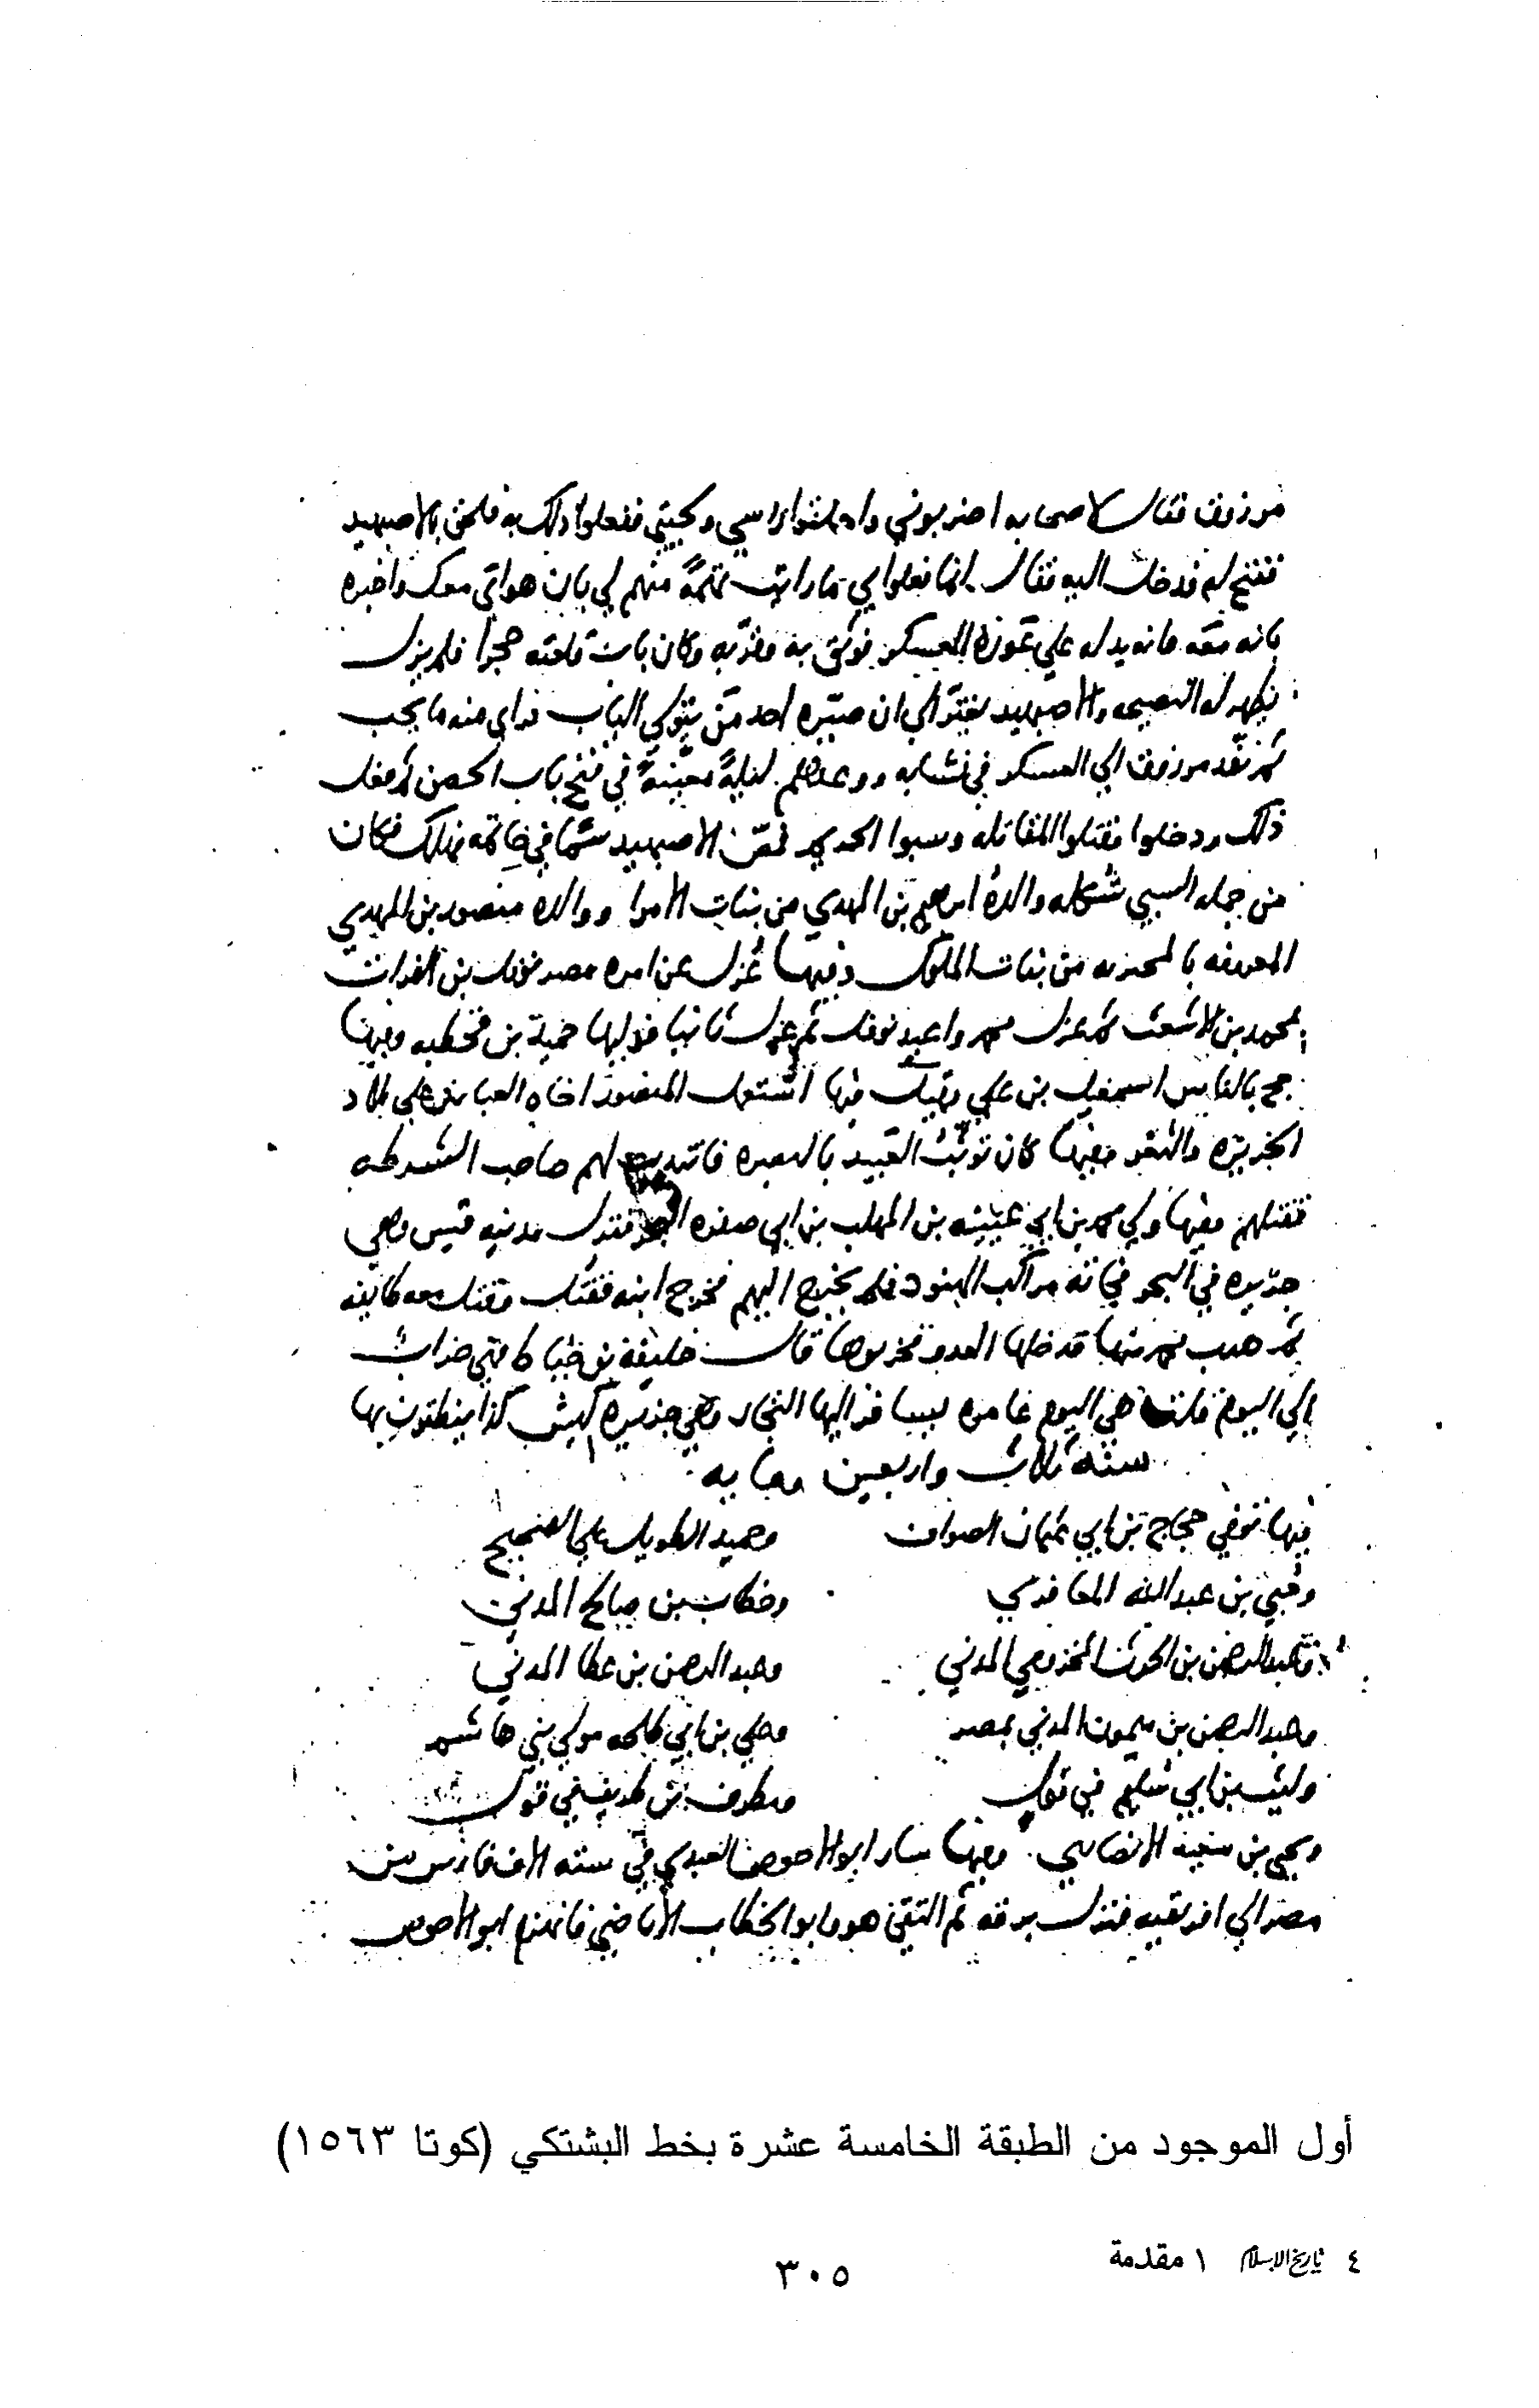 مرزوق فقال لاصحابه اضربوني واحلقوا راسي ولحيتي ففعلوا ذلك به فلحق بالاصبهبد
ففتح له فدخل اليه فقال انما فعلوا بي ما رايت تهمة منهم لي بان هواي معك واخبره
بانه معه وانه يدله علي عورة العسكر فوثق به وقربه وكان باب قلعته حجرا فلم يزل
يظهر له النصيحه والاصبهبد يغتر الي ان صيره احد من يتولي الباب فراي منه ما يحب
ثم نفذ مرزوق الي العسكر في نشابه ووعدهم ليلة معينة في فتح باب الحصن ثم فعل
ذلك ودخلوا فقتلوا المقاتله وسبوا الحريم فمص الاصبهبد سما في خاتمه فهلك فكان
من جمله السبي شكله والدة ابرهيم بن المهدي من بنات الامرا ووالده منصور بن المهدي
المعروفه بالبحتريه من بنات الملوك وفيها عزل عن امره مصر نوفل بن الفرات
بمحمد بن الاشعث ثم عزل محمد واعيد نوفل ثم عزل ثانيا فوليها حميد بن قحطبه وفيها
حج بالناس اسمعيل بن علي وقيل فيها استعمل المنصور اخاه العباس علي بلاد
الجزيره والثغر وفيها كان توثب العبيد بالبصره فانتدب لهم صاحب الشرطه
فقتلهم وفيها ولي محمد بن ابي عيينه بن المهلب بن ابي صفره البحر فنزل مدينه قيس وهي
جزيره في البحر فجاته مراكب الهنود فلم يخرج اليهم فخرج ابنه فقتل وقتل معه طايفه
ثم هرب محمد منها فدخلها العدو فخربوها قال خليفة بن خياط فهي خراب
الي اليوم قلت هي اليوم عامره يسافر اليها التجار وهي جزيره كيش كذا ينطقون بها
سنه ثلاث واربعين ومايه
فيها توفي حجاج بن ابي عثمان الصواف
وحميد الطويل علي الصحيح
وحيي بن عبد الله المعافري
وخطاب بن صالح المدني
وعبد الرحمن بن الحرث المخزومي المدني
وعبد الرحمن بن عطا المدني
وعبد الرحمن بن ميمون المدني بمصر
وعلي بن ابي طلحه مولي بني هاشم
وليث بن ابي سليم في قول
ومطرف بن طريف في قول
ويحيي بن سعيد الانصاري وفيها سار ابو الاحوص العبدي في سته الاف فارس من
مصر الي افريقيه فنزل برقه ثم التقي هو وابو الخطاب الاباضي فانهزم ابو الاحوص
أول الموجود من الطبقة الخامسة عشرة بخط البشتكي (كوتا ١٥٦٣)
٤ تاريخ الإسلام ١ مقدمة
٣٠٥